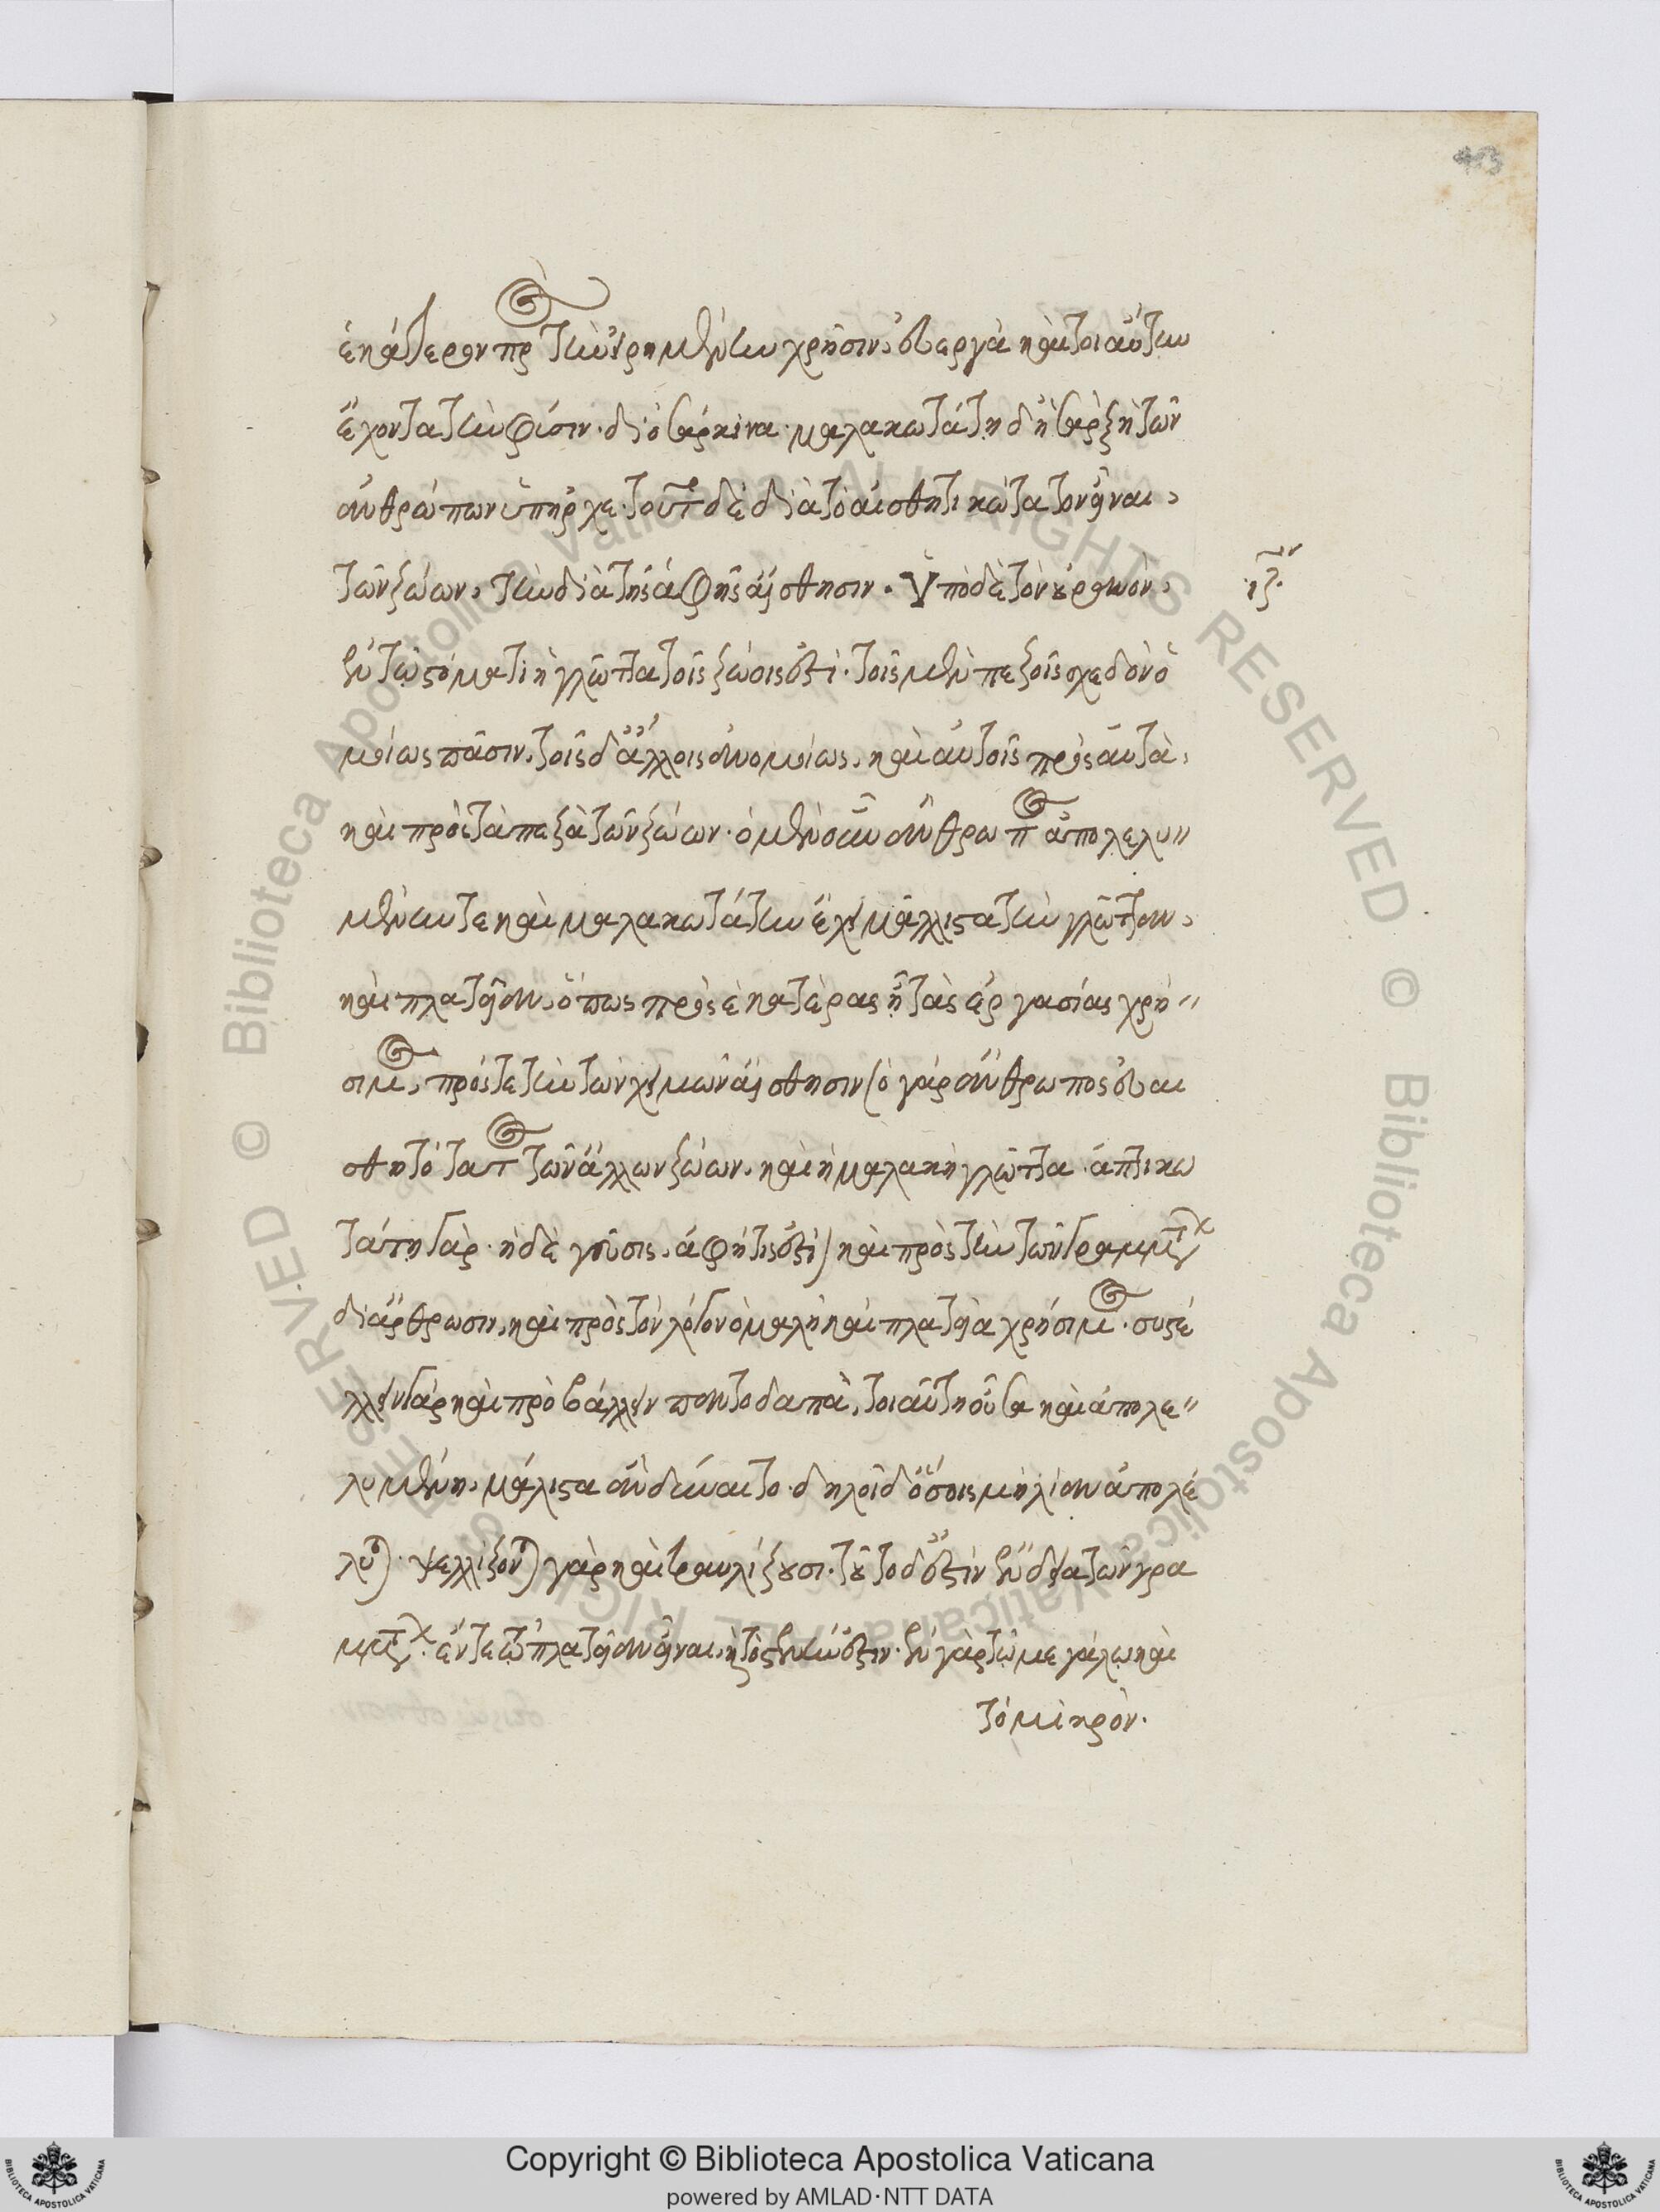 113
ἑκάτερον πρὸς τὴν εἰρημένην χρῆσιν, εὐεργὰ καὶ τοιαύτην
ἔχοντα τὴν φύσιν. διὸ σάρκινα. μαλακωτάτη δ' ἡ σὰρξ ἡ τῶν
ἀνθρώπων ὑπῆρχε. τοῦτο δὲ διὰ τὸ αἰσθητικώτατον εἶναι,
τῶν ζώων, τὴν διὰ τῆς ἁφῆς αἴσθησιν. Ὑπὸ δὲ τὸν οὐρανὸν,
ιζ.
ἐν τῷ στόματι ἡ γλῶττα τοῖς ζώοις ἐστί. τοῖς μὲν πεζοῖς σχεδὸν ὁ
μοίως πᾶσιν, τοῖς δ' ἄλλοις ἀνομοίως, καὶ αὐτοῖς πρὸς αὑτὰ,
καὶ πρὸς τὰ πεζὰ τῶν ζώων. ὁ μὲν οὖν ἄνθρωπος ἀπολελυ"
μένην τε καὶ μαλακωτάτην ἔχει μάλλιστα τὴν γλῶτταν,
καὶ πλατεῖαν, ὅπως πρὸς ἑκατέρας ᾖ τὰς ἐργασίας χρή"
σιμος, πρός τε τὴν τῶν χειμῶν αἴσθησιν (ὁ γὰρ ἄνθρωπος εὐαι
σθητότατος τῶν ἄλλων ζώων, καὶ ἡ μαλακὴ γλῶττα. ἁπτικω
τάτη γὰρ. ἡ δὲ γεῦσις, ἁφή τις ἐστί) καὶ πρὸς τὴν τῶν γραμμάτων
διάρθρωσιν, καὶ πρὸς τὸν λόγον ὁμαλὴ καὶ πλατεῖα χρήσιμος. συστέ
λλειν γὰρ καὶ προβάλλειν παντοδαπὰ, τοιαύτη οὖσα καὶ ἀπολε"
λυμένη, μάλιστα ἂν δύναιτο. δηλοῖ δ' ὅσοις μὴ λίαν ἀπολέ
λυται. ψελλίζονται γὰρ καὶ τραυλίζουσι. τοῦτο δ' ἐστὶν ἔνδεια τῶν γρα
μμάτων. ἔν τε τῷ πλατεῖαν εἶναι, καὶ τὸ στενήν ἐστιν. ἐν γὰρ τῷ μεγάλῳ καὶ
τὸ μικρὸν.
Copyright © Biblioteca Apostolica Vaticana
powered by AMLAD·NTT DATA